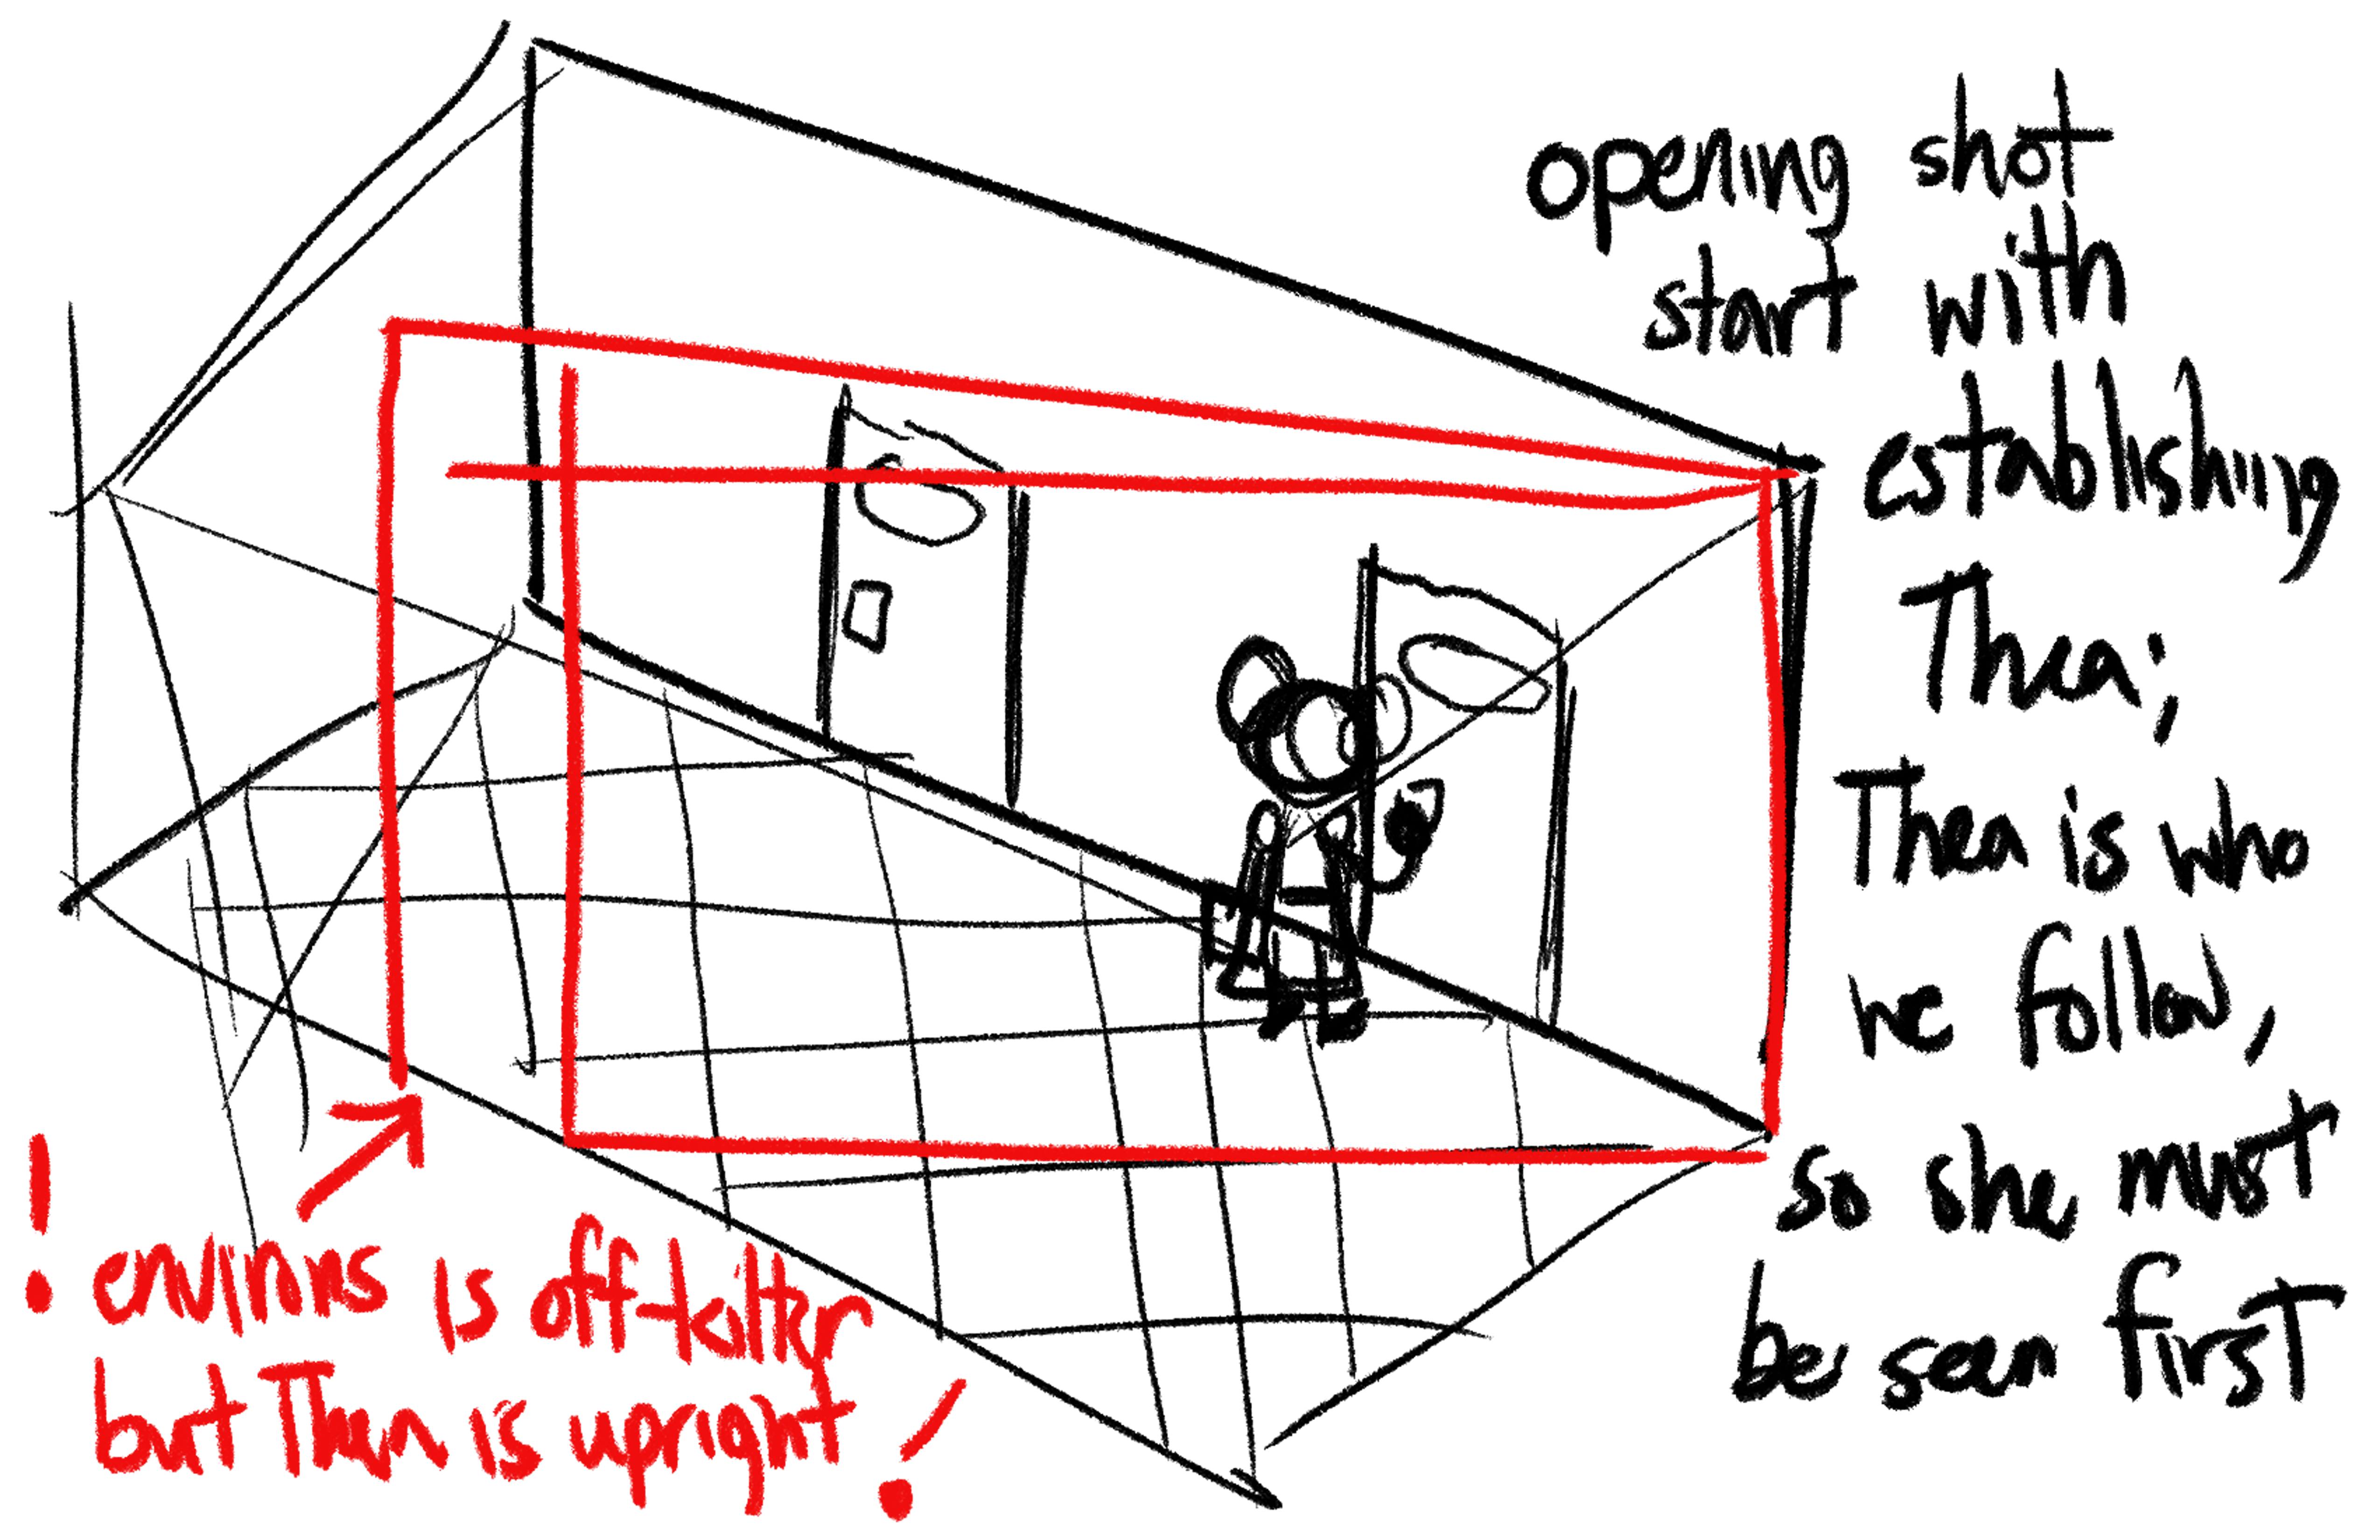 opening shot
start with
establishing
Thea;
Thea is who
we follow,
so she must
be seen first
! environs is off-kilter
but Thea is upright!